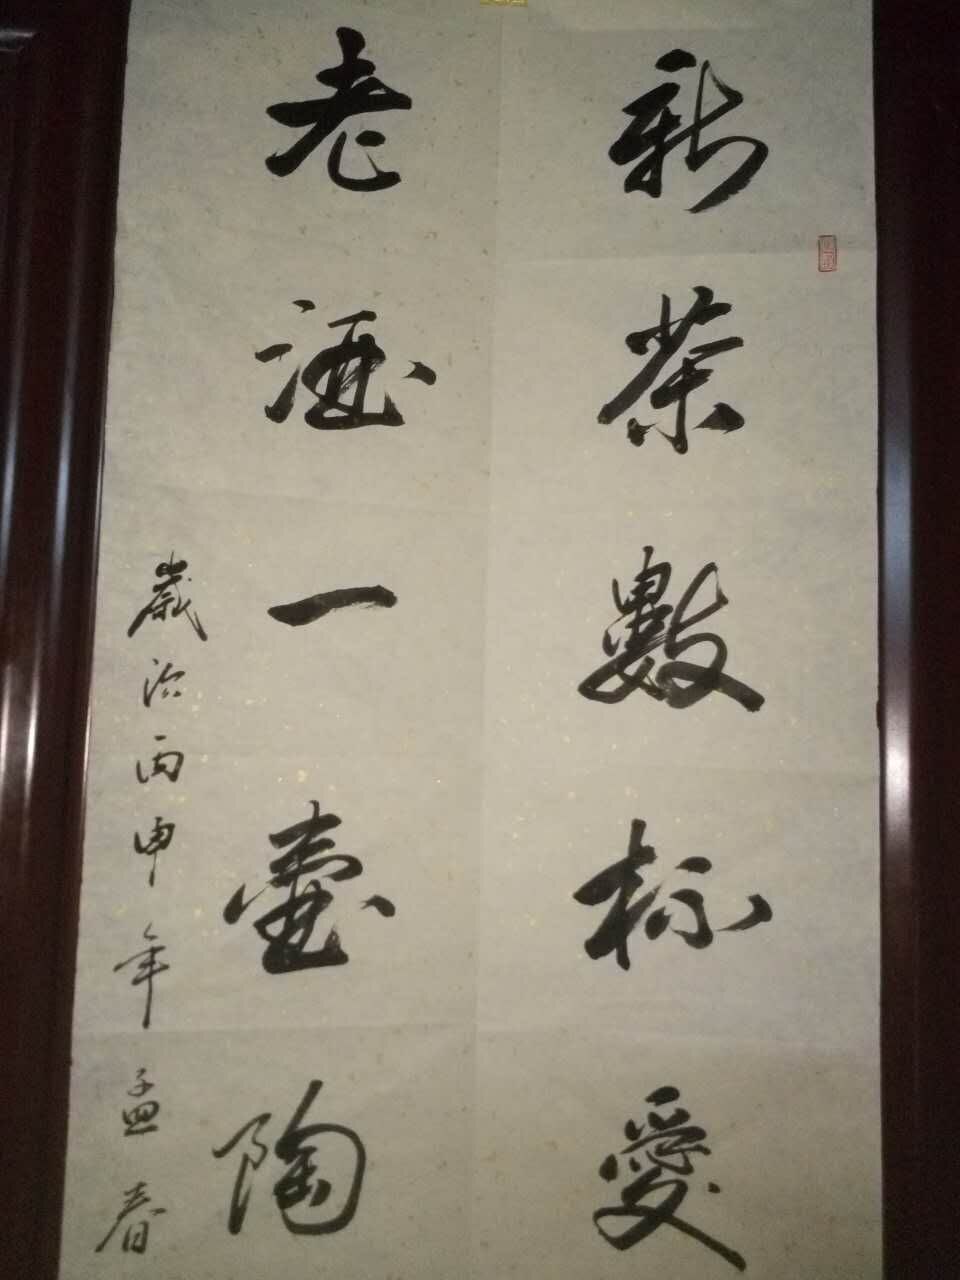 新茶數杯愛
老酒一壷陶
歲次丙申年孟春